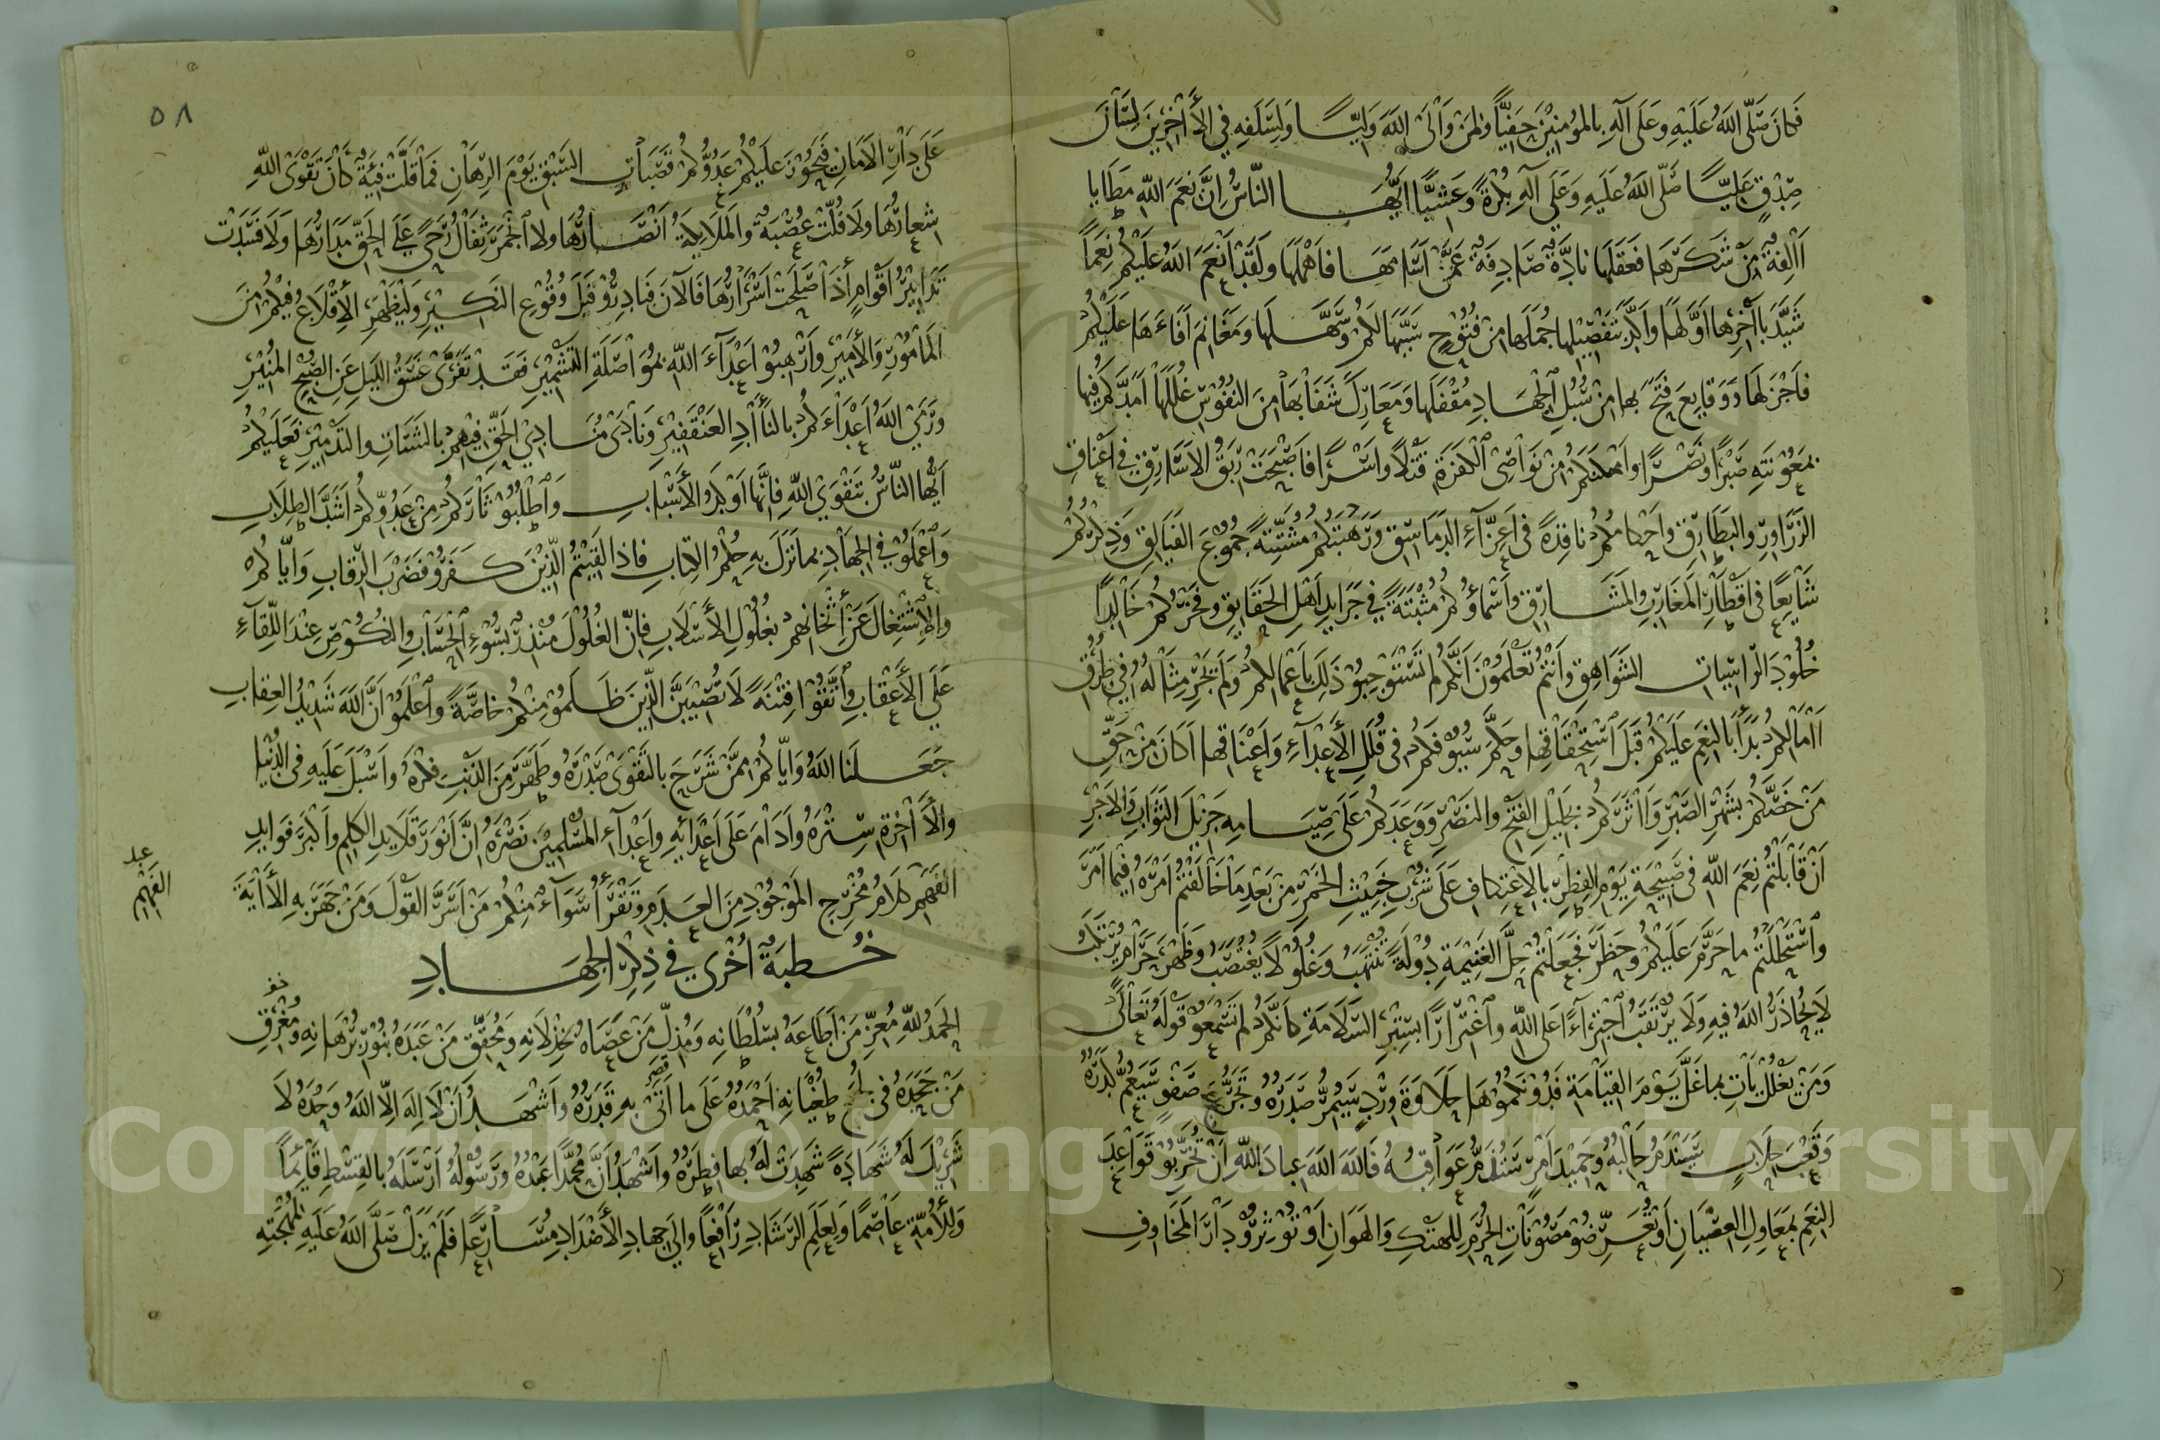 فكان صلى الله عليه وعلى آله بالمؤمنين حفيا ولمن والى الله وليا ولسلفه في الآخرين لسان
صدق عليا صلى الله عليه وعلى آله بكرة وعشيا ايها الناس ان نعم الله مطايا
آلفة من شكرها فعقلها نادة صادفة عمن اسامها فاهملها ولقد انعم الله عليكم نعما
شيد بآخرها اولها واكد بتفصيلها جملها من فتوح سببها لكم وسهلها ومغانم افاءها عليكم
فاجزلها ووقايع فتح بها من سبل الجهاد مقفلها ومعارك شفا بها من النفوس غللها امدكم فيها
بمعونته صبرا ونصرا وامكنكم من نواصي الكفرة قتلا واسرا فاصبحت ربق الاسار في اعناق
الزراور والبطارق واحكامكم نافذة في اعزآء الدماسق ورهبتكم مشتتة جموع الفيالق وذكركم
شايعا في اقطار المغارب والمشارق واسماؤكم مثبتة في جرايد اهل الحقايق وفخركم خالدا
خلود الراسيات الشواهق وانتم تعلمون انكم لم تستوجبو ذلك باعمالكم ولم يجر مثاله في طرق
آمالكم بدأ بالنعم عليكم قبل استحقاقها وحكم سيوفكم في قلل الأعدآء واعناقها اكان من حق
من خصكم بشهر الصبر وآثركم بجليل الفتح والنصر ووعدكم على صيامه جزيل الثواب والاجر
ان قابلتم نعم الله في صبيحة يوم الفطر بالاعتكاف على شرب خبيث الخمر من بعد ما خالفتم امره فيما امر
واستحللتم ما حرم عليكم وحظر فجعلتم حل الغنيمة دولة تنتهب وغلولا يغتصب وظهر حرام يرتكب
لا يحاذر الله فيه ولا يرتقب اجترآءا على الله واغترارا بستر السلامة كانكم لم تسمعو قوله تعالى
ومن يغلل يات بما غل يوم القيامة فدونكموها حلاوة ورد سيمر صدره وتجرع صفو سيعم كدره
وقعب حلاب سيندم حالبه وحميد امر ستذم عواقبه فالله الله عباد الله ان تخربو قواعد
النعم بمعاول العصيان او تعرضو مصونات الحرم للهتك والهوان او توثرو دار المخاوف
٥٨
على دار الامان فتحوز عليكم عدوكم قصبات السبق يوم الرهان فما قلت فية كان تقوى الله
شعارها ولا فلت عصبة والملايكة انصارها ولا انجمر ثفال رحى على الحق مدارها ولا فسدت
تدابير اقوام اذا صلحت اسرارها فالآن فبادرو قبل وقوع النكير وليظهر الأقلاع فيكم من
المامور والأمير وارهبو اعدآء الله بمواصلة التشمير فقد تفرى غسق الليل عن الصبح المنير
ورمى الله اعداءكم بالنآد العنقفير ونادى منادي الحق فيهم بالشتات والتدمير فعليكم
ايها الناس بتقوى الله فانها اوكد الأسباب واطلبو ثاركم من عدوكم اشد الطلاب
واعملو في الجهاد بما نزل به حكم الكتاب فاذا لقيتم الذين كفرو فضرب الرقاب واياكم
والاشتغال عن أثخانهم بغلول الأسلاب فان الغلول منذر بسوء الحساب والنكوص عند اللقآء
على الأعقاب واتقوا فتنة لا تصيبن الذين ظلمو منكم خاصة واعلمو ان الله شديد العقاب
جعلنا الله واياكم ممن شرح بالتقوى صدره وطهر من الدنس فكره واسبل عليه في الدنيا
والآخرة ستره وادام على اعدائه واعدآء المسلمين نصره ان انور قلايد الكلم واكبر فوايد
الفهم كلام مخرج الموجود من العدم وتقرأ سوآء منكم من اسر القول ومن جهر به الأية
عبد
الفهم
خطبة أخرى في ذكر الجهاد
الحمد لله معز من أطاعه بسلطانه ومذل من عصاه بخذلانه ومحقق من عبده بنور برهانه ومغرق
من جحده في لجج طغيانه احمده على ما اتى به قدره واشهد ان لا اله الا الله وحده لا
شريك له شهادة شهدت له بها فطره واشهد ان محمدا عبده ورسوله ارسله بالقسط قايما
وللأمة عاصما ولعلم الرشاد رافعا والى جهاد الأضداد مسارعا فلم يزل صلى الله عليه لمهجته
Copyright © King Saud University